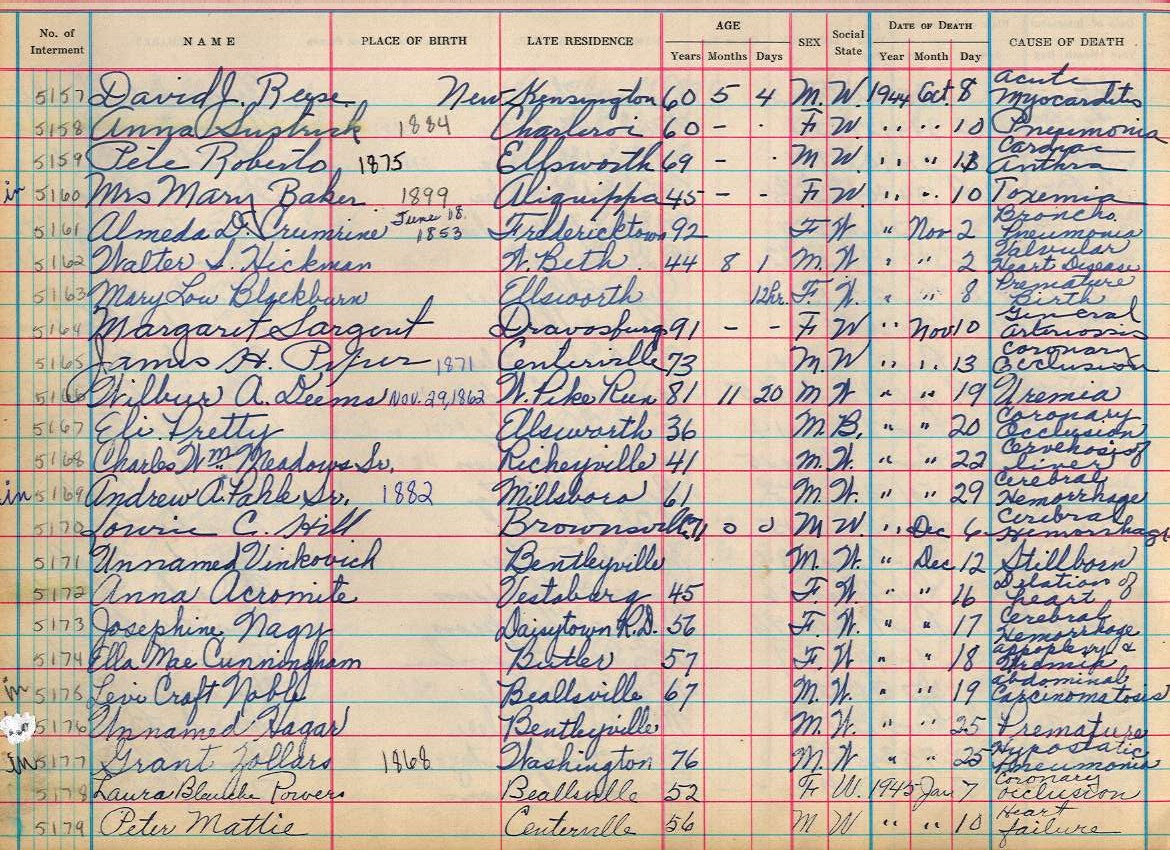 No. of Interment NAME PLACE OF BIRTH LATE RESIDENCE AGE Years Months Days SEX Social State DATE OF DEATH Year Month Day CAUSE OF DEATH
5157 David J. Reese New Kensington 60 5 4 M. W. 1944 Oct. 8 Acute Myocarditis
5158 Anna Sustrick 1884 Charleroi 60 - . F W. " " 10 Pneumonia
5159 Pete Roberto 1875 Ellsworth 69 - . M W. " " 13 Cardiac Anthra
in 5160 Mrs Mary Baker 1899 Aliquippa 45 - - F W. " " 10 Toxemia
5161 Almeda D. Crumrine June 18. 1853 Fredericktown 92 F W. " Nov 2 Broncho. Pneumonia
5162 Walter S. Hickman W. Beth. 44 8 1 M. W. " " 2 Valvular Heart Disease
5163 Mary Lou Blackburn Ellsworth 12hr. F W. " " 8 Premature Birth
5164 Margaret Sargent Dravosburg 91 - - F W " Nov 10 General Arteriossis
5165 James H. Piper 1871 Centerville 73 M. W " " 13 Coronary Occlusion
5166 Wilbur A. Deems Nov. 29, 1862 W. Pike Run 81 11 20 M W. " " 19 Uremia
5167 Eli Pretty Ellsworth 36 M. B. " " 20 Coronary Occlusion
5168 Charles Wm. Meadows Sr. Richeyville 41 M. W. " " 22 Cervehosis of liver
in 5169 Andrew A. Pahle Sr. 1882 Millsboro 61 M. W. " " 29 Cerebral Hemorrhage
5170 Lowrie C. Hill Brownsville 71 0 0 M W. " Dec 6 Cerebral Hemorrhage
5171 Unnamed Vinkovich Bentleyville M. W. " Dec 12 Stillborn
5172 Anna Acromite Vestaburg 45 F W " " 16 Dilation of heart
5173 Josephine Nagy Daisytown R.D. 56 F. W. " " 17 Cerebral Hemorrhage
5174 Ella Mae Cunningham Butler 57 F W " " 18 appoplexy & Uremia
in 5175 Levi Craft Noble Beallsville 67 M. W. " " 19 abdominal Carcinomatosis
5176 Unnamed Hagar Bentleyville M. W. " " 25 Premature
in 5177 Grant Zollars 1868 Washington 76 M. W " " 25 Hypostatic Pneumonia
5178 Laura Blanche Powers Beallsville 52 F W. 1945 Jan 7 Coronary occlusion
5179 Peter Mattie Centerville 56 M W " " 10 Heart failure